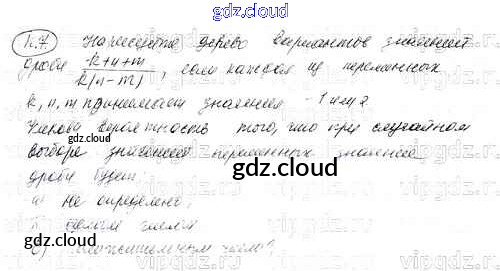 gdz.cloud
К.7 Нарисуйте дерево вариантов значений
дроби k+n+m / k(n-m), если каждая из переменных
k, n, m принимает значения -1 или 2.
Какова вероятность того, что при случайном
выборе значений переменных значение
дроби будет:
gdz.cloud
а) не определено;
целым числом
gdz.cloud
в) положительным числом?